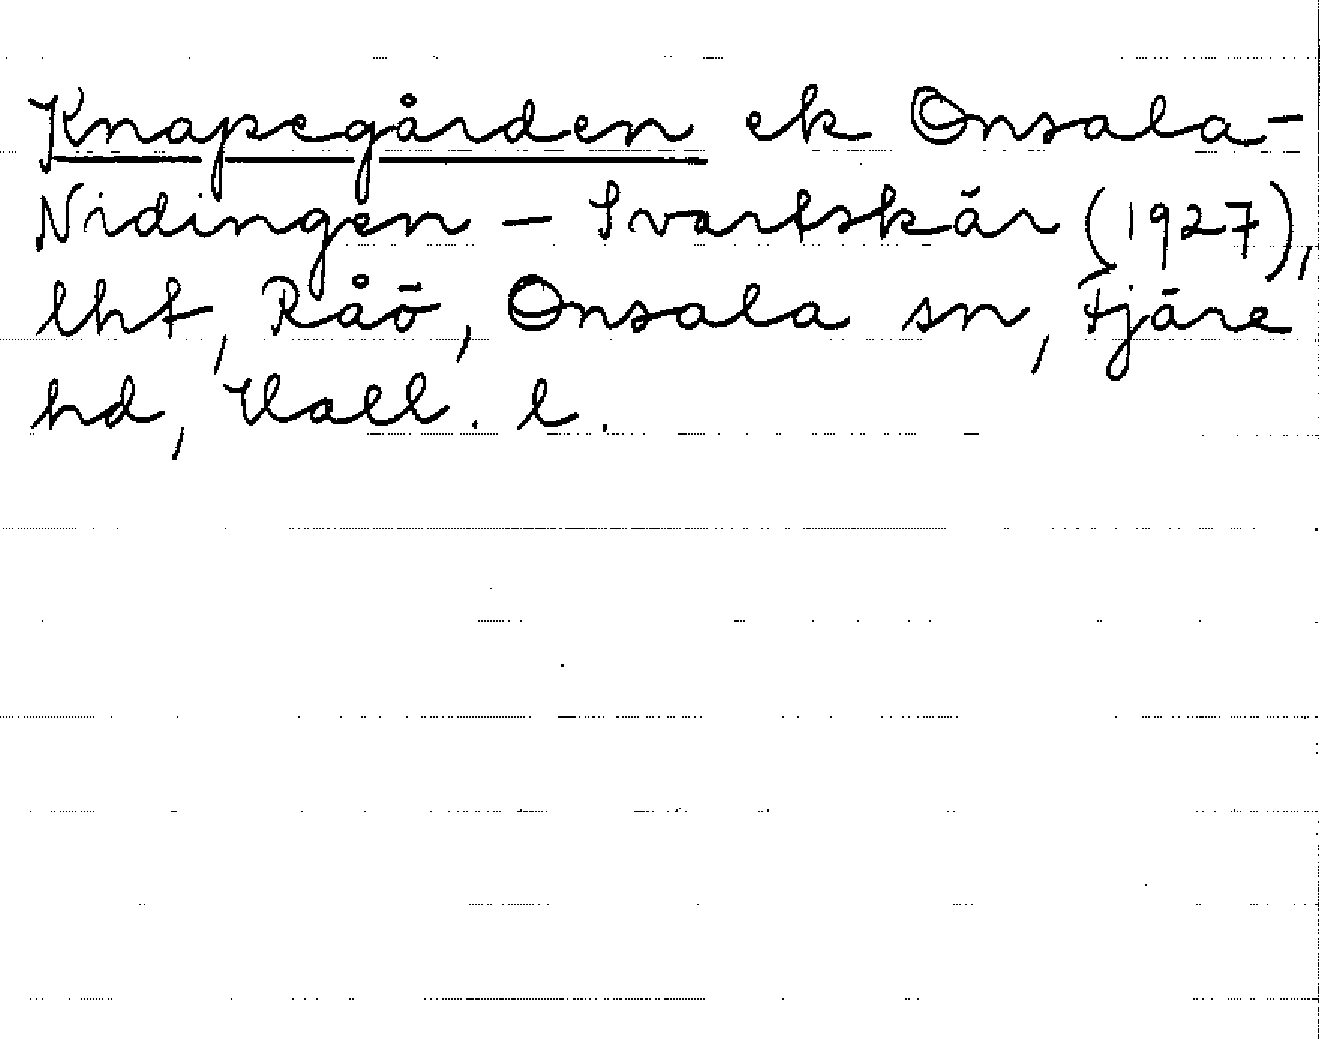 Knapegården ek Onsala-
Nidingen – Svartskär (1927),
lht, Råö, Onsala sn, Fjäre
hd, Hall. l.